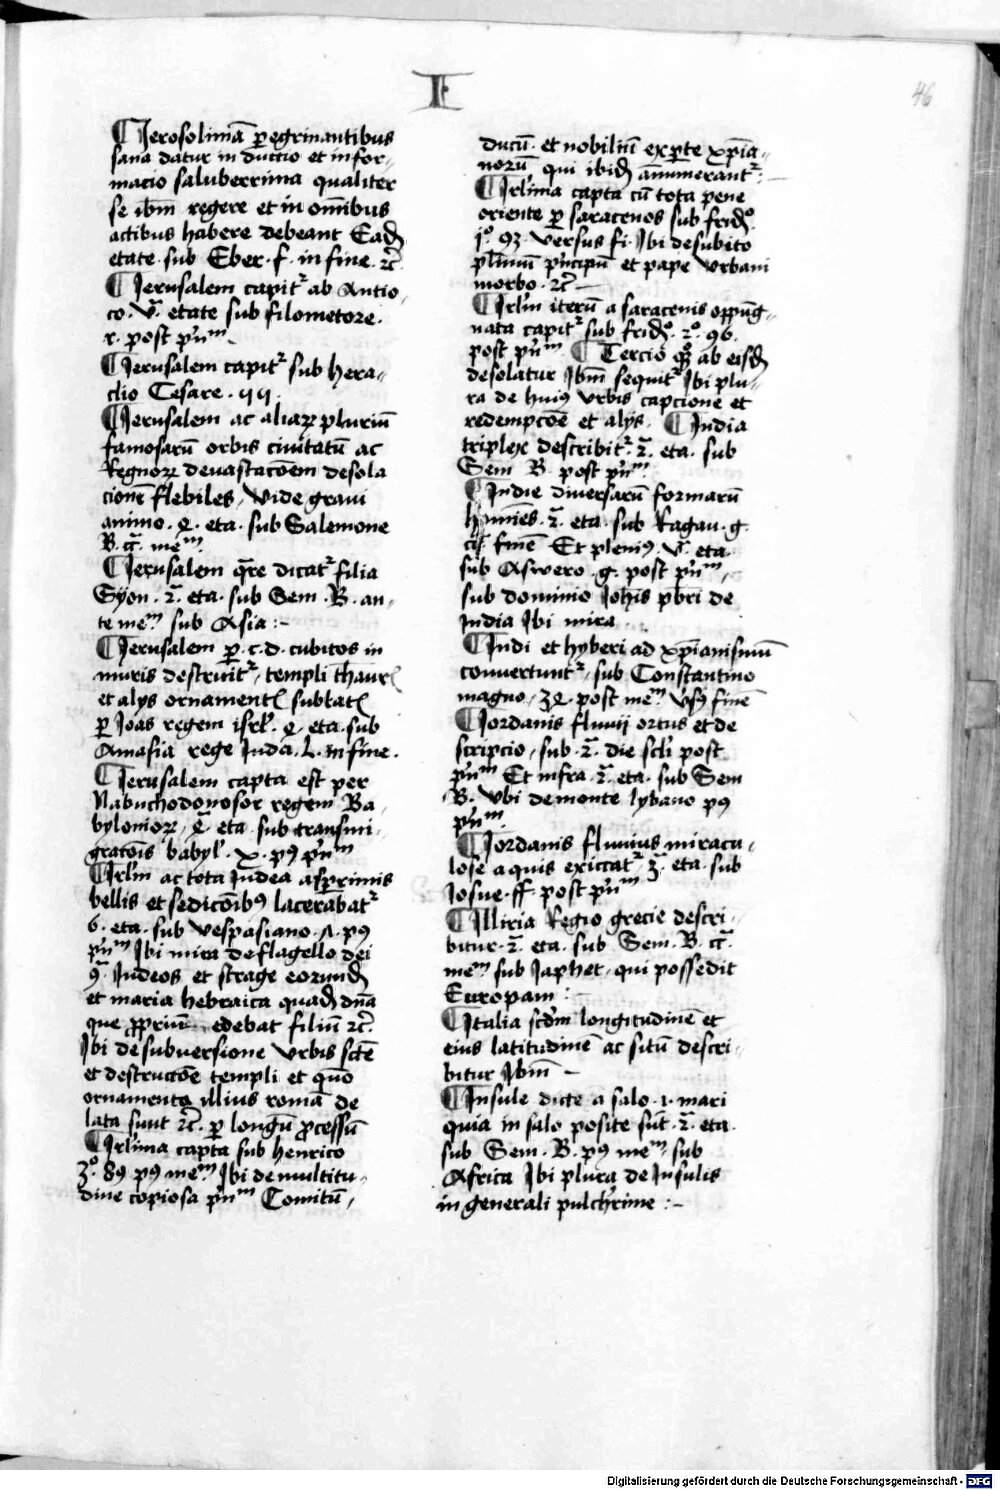 I
46
¶ Jerosolimā ꝑegrinantibus
sana datur in ductio et infor-
macio saluberrima qualiter
se ibm̄ regere et in om̄ibus
actibus habere debeant Ead
etate sub Eber · f · in fine ⁊c̄
¶ Jerusalem capitᷣ ab Antio-
co · v̄ etate sub filometore ·
r · post p̄nᵐ
¶ Jerusalem capitᷣ sub hera-
clio Cesare · 44 ·
¶ Jerusalem ac aliaꝝ pluriū
famosarū orbis ciuitatū ac
Regnoꝝ deuastacōem desola
cionē flebiles, vide graui
animo · 4 · eta · sub Salemone
B · cr̄ · meᵐ
¶ Jerusalem qr̄e dicatᷣ filia
Syon · 2̄ · eta · sub Sem · B · an-
te meᵐ sub Asia :-
¶ Jerusalem ꝑ · c · d · cubitos in
muris destruitᷣ, templi thaur
et alys ornament sublat
ꝑ Joas regem isrl̄ · 4 · eta · sub
Amasia rege Juda · L · in fine ·
¶ Jerusalem capta est per
Nabuchodonosor regem Ba-
bylonioꝝ, 4̄ eta · sub transmi-
gracōis babyl̄ · x · pꝰ p̄nᵐ
¶ Jrl̄m ac tota Judea asꝑrimis
bellis et sedicōibꝰ lacerabatᷣ
6 · eta · sub vespasiano · A · pꝰ
p̄nᵐ Ibi mira de flagello dei
ꝯ̄ Judeos et strage eorund
et maria hebraica quad dn̄a
que ꝓpriū edebat filiū ⁊c̄
Ibi de subuersione vrbis sctē
et destructōe templi et quō
ornamenta illius romā de
lata sunt ⁊c̄ · ꝑ longū ꝓcessū
¶ Jrl̄ima capta sub henrico
3º · 89 pꝰ meᵐ Ibi de multitu-
dine copiosa p̄nᵐ Comitū,
ducū · et nobiliū exꝑte xp̄ia-
norū qui ibid annūerantᷣ :-
¶ Jrl̄ima capta cū tota pene
oriente ꝑ saracenos sub fridº
jº · 93 · versus fi · Ibi de subito
pl̄imū p̄ncipū et pape vrbani
morbo · ⁊c̄ -
¶ Jrl̄m iterū a saracenis oppūg-
nata capitᷣ sub fridº · 2º · 96 ·
post p̄nᵐ ¶ Tercio qº ab eisd
desolatur Ibm̄ sequitᷣ Ibi plu-
ra de huiꝰ vrbis capcione et
redempcōe et alys · ¶ India
triplex describitᷣ · 2̄ · eta · sub
Sem · B · post p̄nᵐ
¶ Indie diuersarū formarū
hom̄ies · 2̄ · eta · sub Ragau · g ·
finē Et pleniꝰ · v̄ · eta ·
sub Aswero · g · post p̄nᵐ,
sub dominio Joh̄is pb̄ri de
India Ibi mira
¶ Indi et hyberi ad xp̄ianismū
conuertuntᷣ, sub Constantino
magno, 34 · post meᵐ v̄sꝰ finē
¶ Iordanis fluuij ortus et de
scripcio, sub · 2̄ · die scl̄i post
p̄nᵐ Et infra · 2̄ · eta · sub Sem
B · vbi de monte lybano pꝰ
p̄nᵐ
¶ Iordanis fluuius miracu-
lose aquis exiccatᷣ 3̄ · eta · sub
Iosue · ff · post p̄nᵐ
¶ Illiria Regio grecie descri-
bitur · 2̄ · eta · sub Sem · B · cr̄
meᵐ sub Iaphet, qui possedit
Europam :-
¶ Italia scdm̄ longitudinē et
eius latitudinē ac sitū descri-
bitur Ibm̄ -
¶ Insule dicte a salo · i · mari
quia in salo posite sūt · 2̄ · eta ·
sub Sem · B · pꝰ meᵐ sub
Africa Ibi plura de Insulis
in generali pulchrime :-
Digitalisierung gefördert durch die Deutsche Forschungsgemeinschaft - DFG